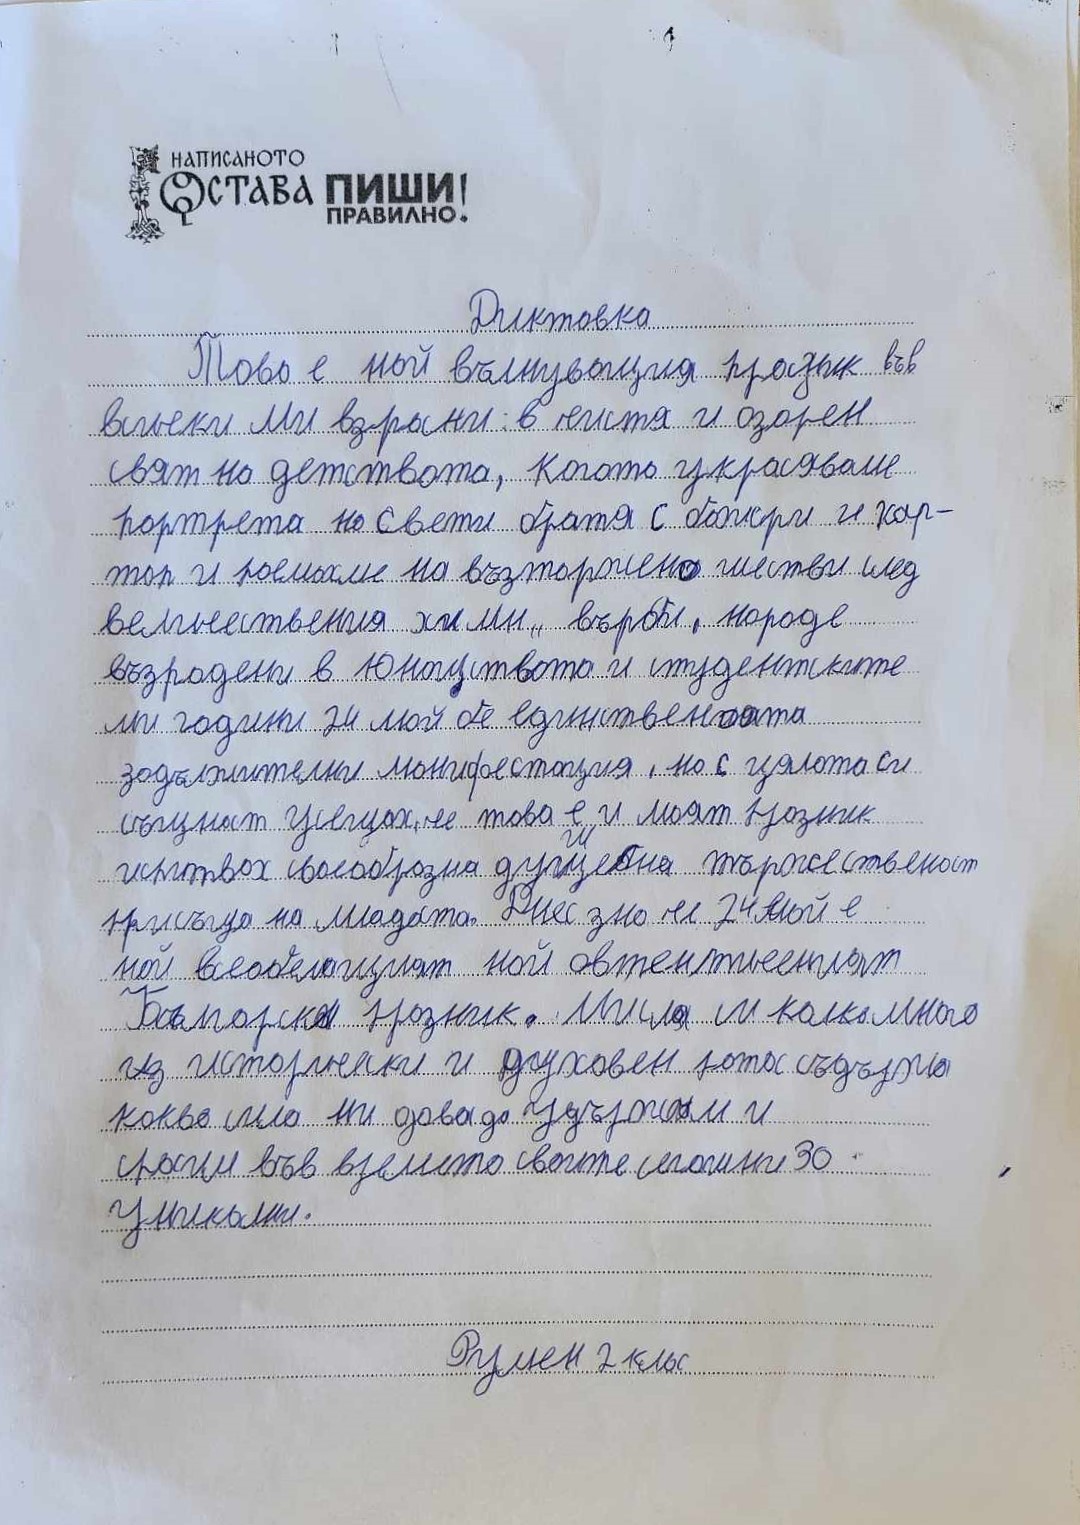 НАПИСАНОТО
ОСТАВА ПИШИ!
ПРАВИЛНО!
Диктовка
Това е най вълнуващия празник във
всички ми взрасни: в чистя и озарен
свят на детството, когато украсяваше
портрета на свети братя с божури и хар-
топ и поемахме на възторжено шестви след
величествения химн „ върви, народе
възродени в юношството и студентските
ми години 24 май бе единствената
задължителни манифестация, но с цялото си
същност усещах, че това е и моят празник
изпитвах своеобразна душшебна тържественост
присъща на младата. Днес зно че 24 май е
най всеобемащият най автентичният
Български празник. Мисля си колко много
из исторически и духовен потос съдържа
какво сила ни дава да удържим и
спасим във времето своите сегашни 30
уникални.
Румен 2 клас